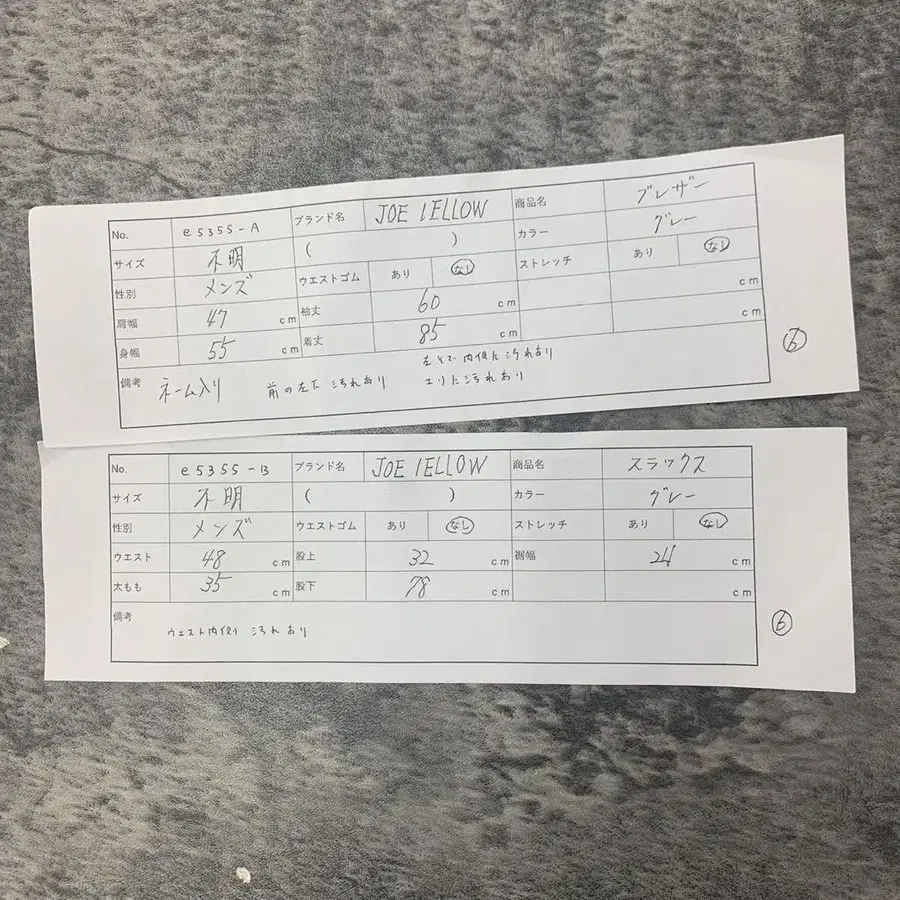 No. e5355-A ブランド名 JOE IELLOW 商品名 ブレザー
サイズ 不明 ( ) カラー グレー
性別 メンズ ウエストゴム あり なし ストレッチ あり なし
肩幅 47 cm 袖丈 60 cm cm
身幅 55 cm 着丈 85 cm cm
備考 ネーム入り 前の左下 汚れあり 左そで内側に汚れあり
エリに汚れあり
6
No. e5355-B ブランド名 JOE IELLOW 商品名 スラックス
サイズ 不明 ( ) カラー グレー
性別 メンズ ウエストゴム あり なし ストレッチ あり なし
ウエスト 48 cm 股上 32 cm 裾幅 24 cm
太もも 35 cm 股下 78 cm cm
備考
ウエスト内側 汚れあり
6